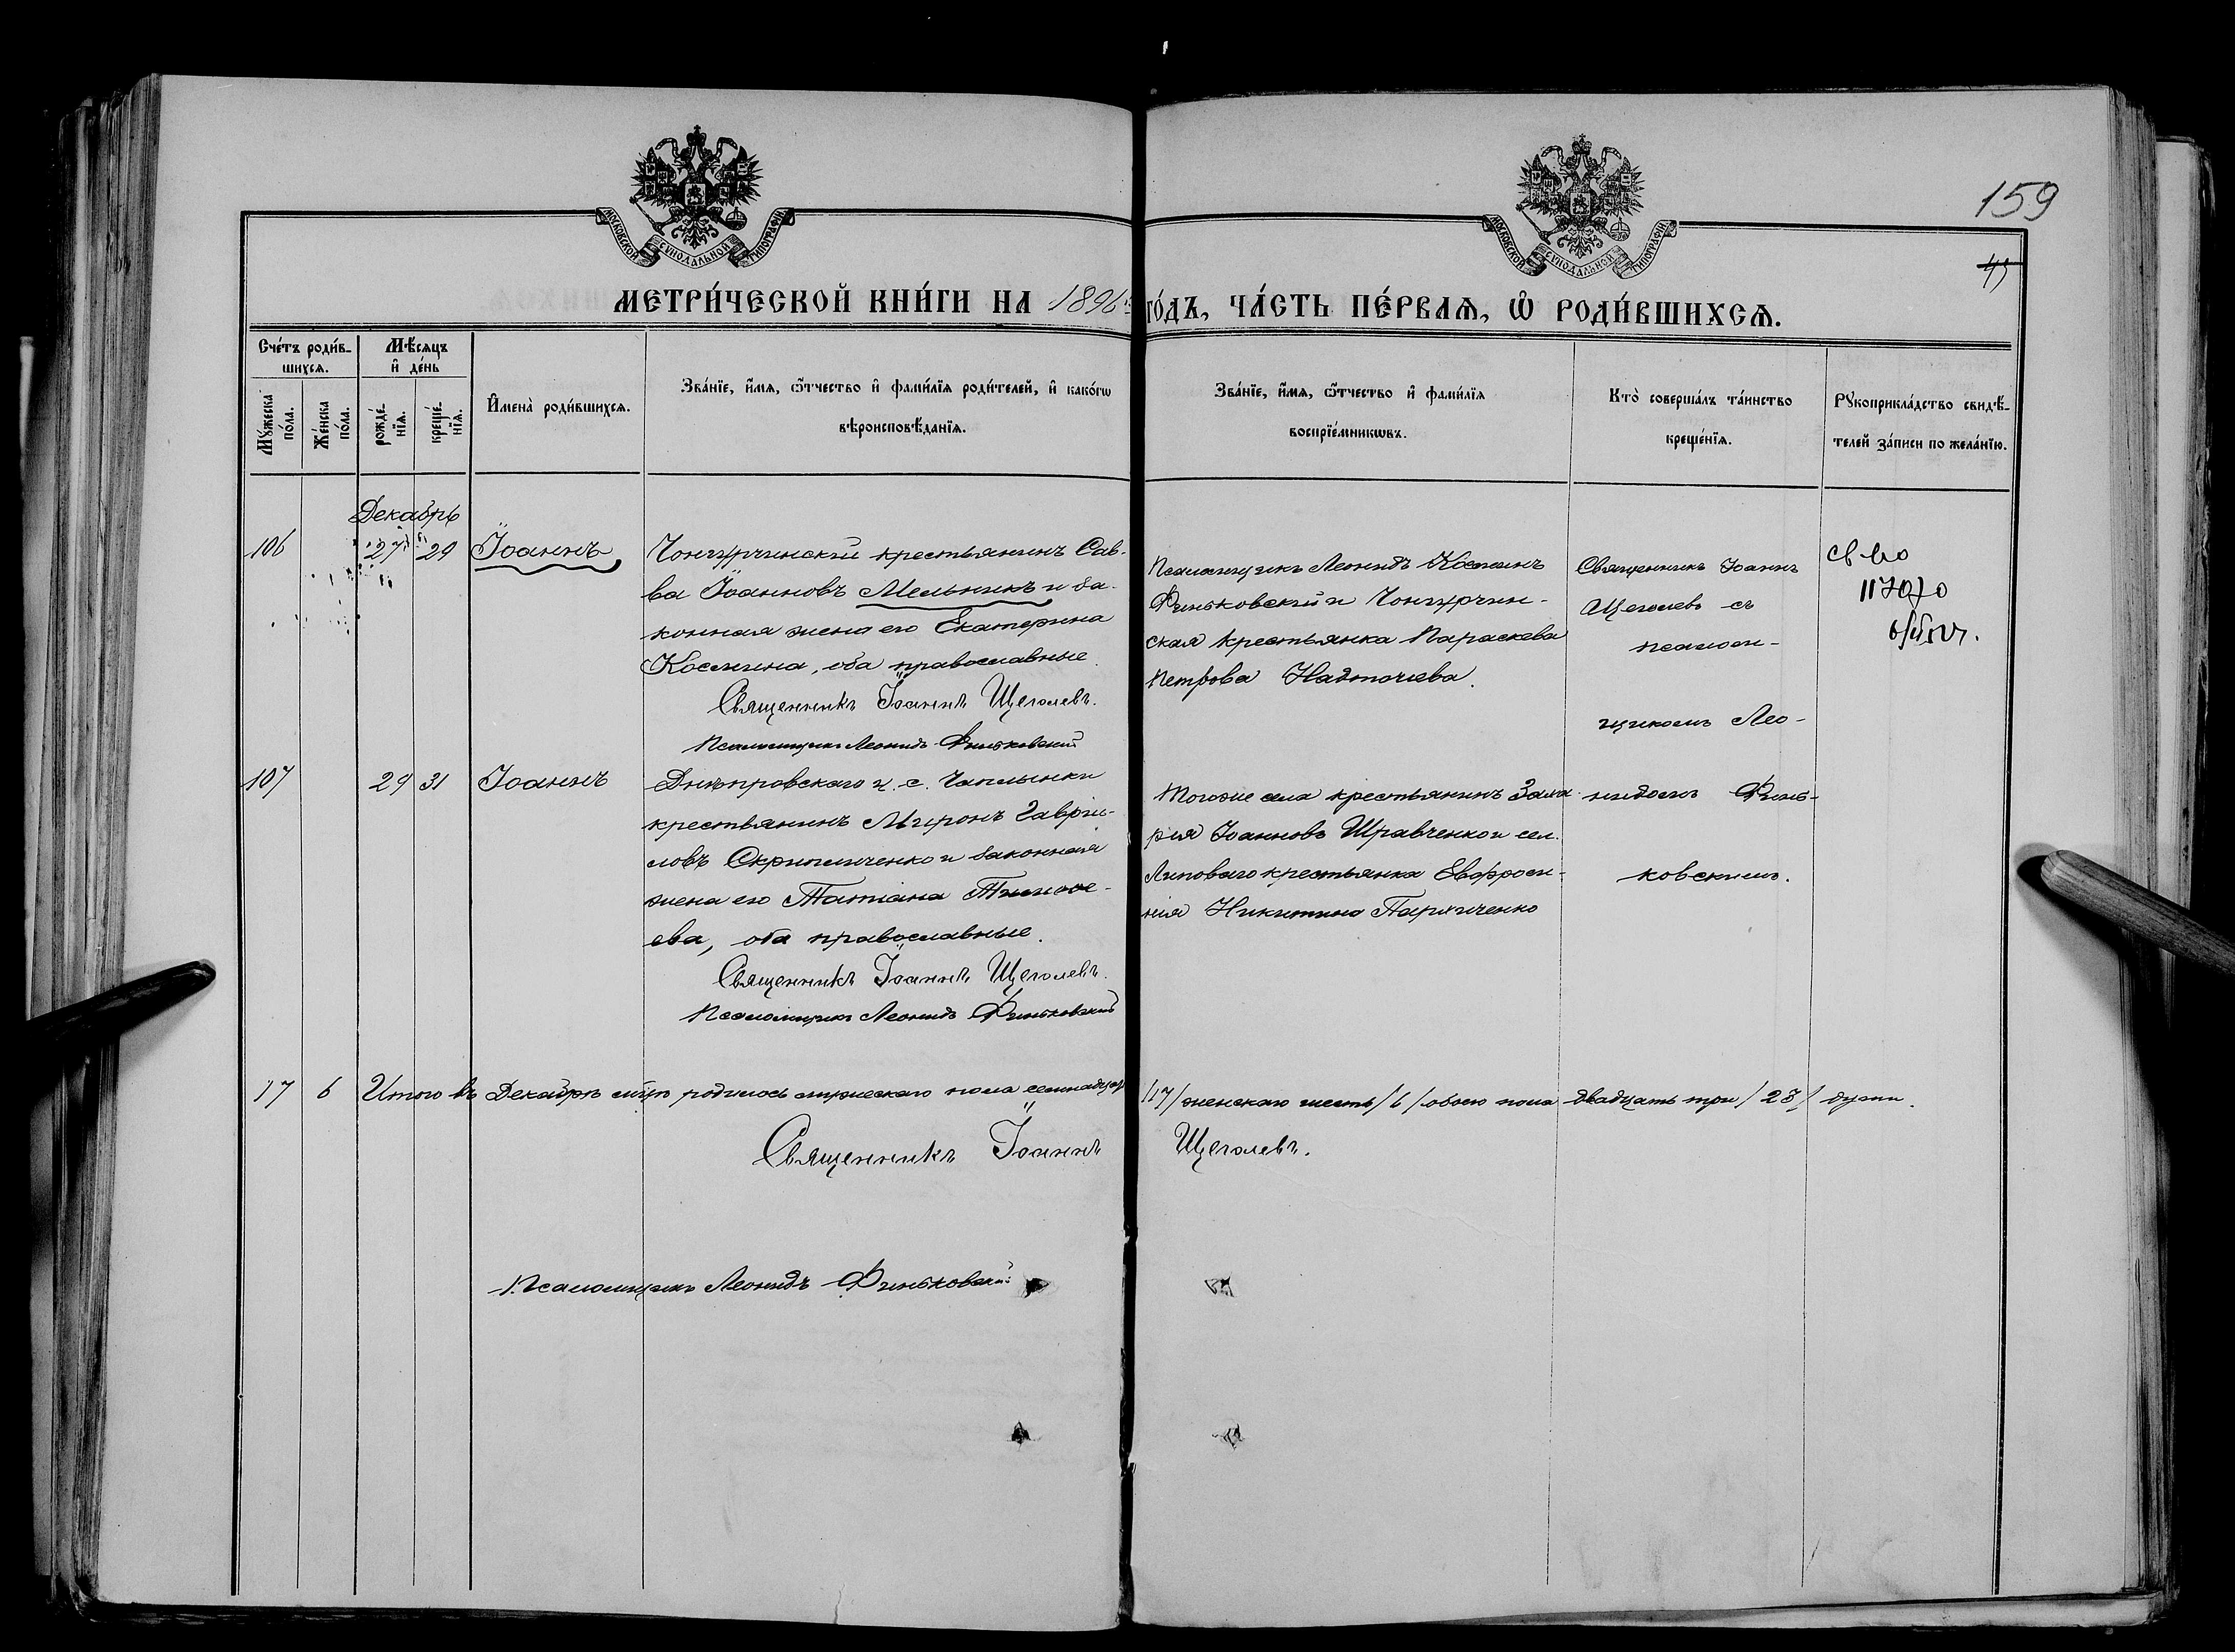 МОСКОВСКОЙ СѴНОДАЛЬНОЙ ТИПОГРАФІИ
МОСКОВСКОЙ СѴНОДАЛЬНОЙ ТИПОГРАФІИ
159
МЕТРИ́ЧЕСКОЙ КНИ́ГИ НА 1896 ГО́ДЪ, ЧА́СТЬ ПЕ́РВАѦ, Ѽ РОДИ́ВШИХСѦ.
Сче́тъ роди́в-
шихсѧ.
Мꙋ́жеска по́ла.
Же́нска по́ла.
Мѣ́сѧцъ
и҆ де́нь
рожде́-нїѧ.
креще́-нїѧ.
И҆мена̀ роди́вшихсѧ.
Зва́нїе, и҆́мѧ, ѻ҆́тчество и҆ фами́лїѧ роди́телей, и҆ како́гѡ
вѣроисповѣ́данїѧ.
Зва́нїе, и҆́мѧ, ѻ҆́тчество и҆ фами́лїѧ
воспрїе́мникѡвъ.
Кто̀ соверша́лъ та́инство
креще́нїѧ.
Рꙋкоприкла́дство свидѣ́-
телей за́писи по жела́нїю.
Декабрь
106 27 29 Іоаннъ
Чонгурчинскій крестьянинъ Сав-
ва Іоанновъ Мельникъ и за-
конная жена его Екатерина
Космина, оба православные.
Священникъ Іоаннъ Щеголевъ.
Псаломщикъ Леонидъ Финьковскій
Псаломщикъ Леонидъ Косминъ
Финьковскій и Чонгурчин-
ская крестьянка Параскева
Петрова Надточіева.
Священникъ Іоаннъ
Щеголевъ съ
псалом-
щикомъ Лео-
св-во
107 29 31 Іоаннъ
Днѣпровскаго у. с. Чаплынки
крестьянинъ Миронъ Гаврі-
ловъ Скрипниченко и законная
жена его Татіана Тимоѳе-
ева, оба православные.
Священникъ Іоаннъ Щеголевъ.
Псаломщикъ Леонидъ Финьковскій
Тогоже села крестьянинъ
Іоанновъ Кравченко и сел.
крестьянка Евфроси-
нія Никитина
нидомъ Финь-
ковскимъ.
17 6 Итого въ Декабрѣ мцѣ родилось мужескаго пола семнадцать /17/ женскаго шесть /6/ обоего пола двадцать три /23/ души.
Священникъ Іоаннъ Щеголевъ.
Псаломщикъ Леонидъ Финьковскій